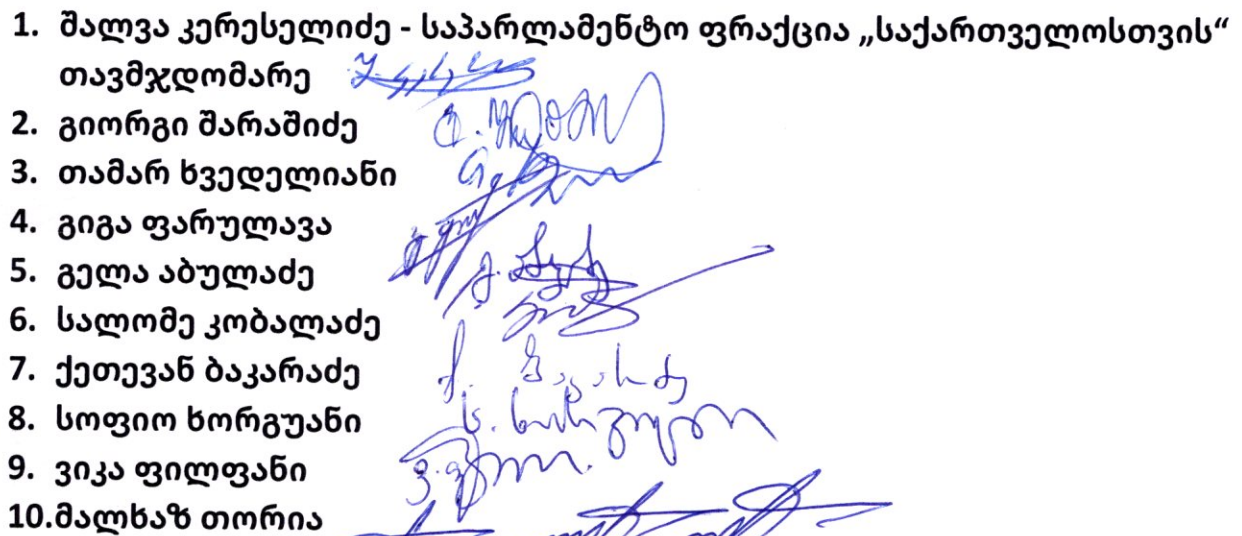 1. შალვა კერესელიძე - საპარლამენტო ფრაქცია „საქართველოსთვის“
თავმჯდომარე
2. გიორგი შარაშიძე
3. თამარ ხვედელიანი
4. გიგა ფარულავა
5. გელა აბულაძე
6. სალომე კობალაძე
7. ქეთევან ბაკარაძე
8. სოფიო ხორგუანი
9. ვიკა ფილფანი
10.მალხაზ თორია